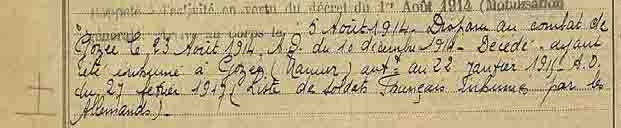 Rappelé à l'activité en vertu du décret du 1er Août 1914 (Mobilisation
générale) au corps le 5 Août 1914. Disparu au combat de
Gozée le 23 Août 1914. A.D. du 10 décembre 1914. Décédé, ayant
été inhumé à Gozée (Namur) antt au 22 janvier 191 A.D.
du 27 février 1917 (Liste de soldats français inhumés par les
Allemands).